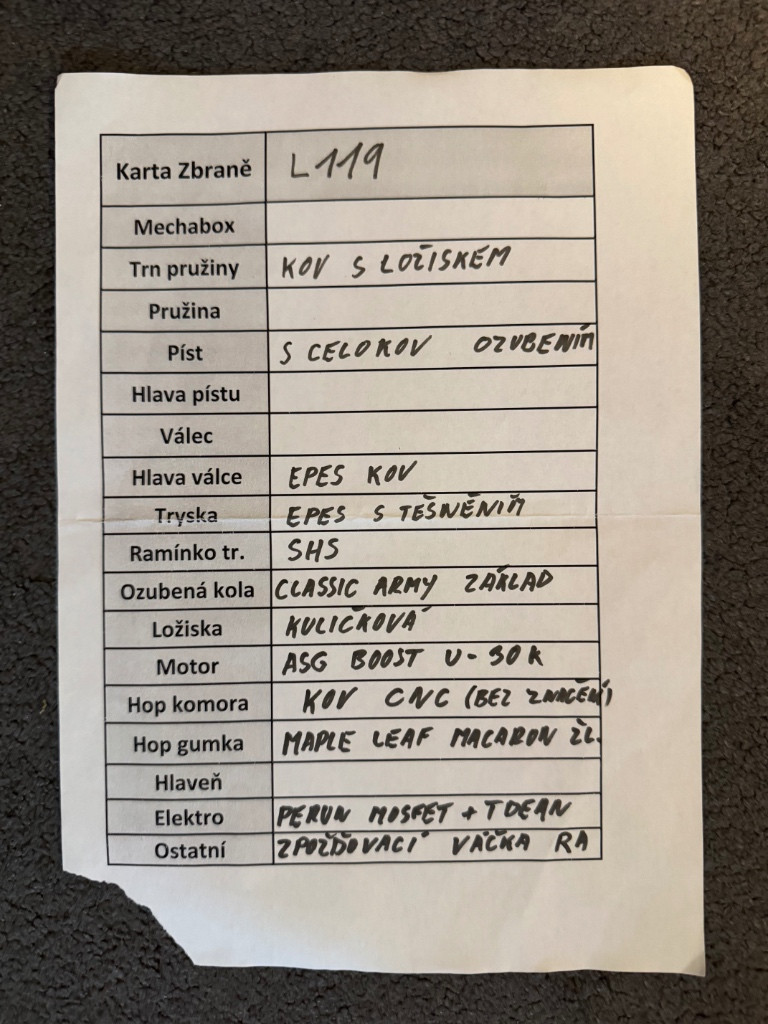 Karta Zbraně L119
Mechabox
Trn pružiny KOV S LOŽISKEM
Pružina
Píst S CELOKOV OZUBENÍM
Hlava pístu
Válec
Hlava válce EPES KOV
Tryska EPES S TĚSNĚNÍM
Ramínko tr. SHS
Ozubená kola CLASSIC ARMY ZÁKLAD
Ložiska KULIČKOVÁ
Motor ASG BOOST U-30K
Hop komora KOV CNC (BEZ ZNAČENÍ)
Hop gumka MAPLE LEAF MACARON ŽL.
Hlaveň
Elektro PERUN MOSFET + TDEAN
Ostatní ZPOŽĎOVACÍ VAČKA RA